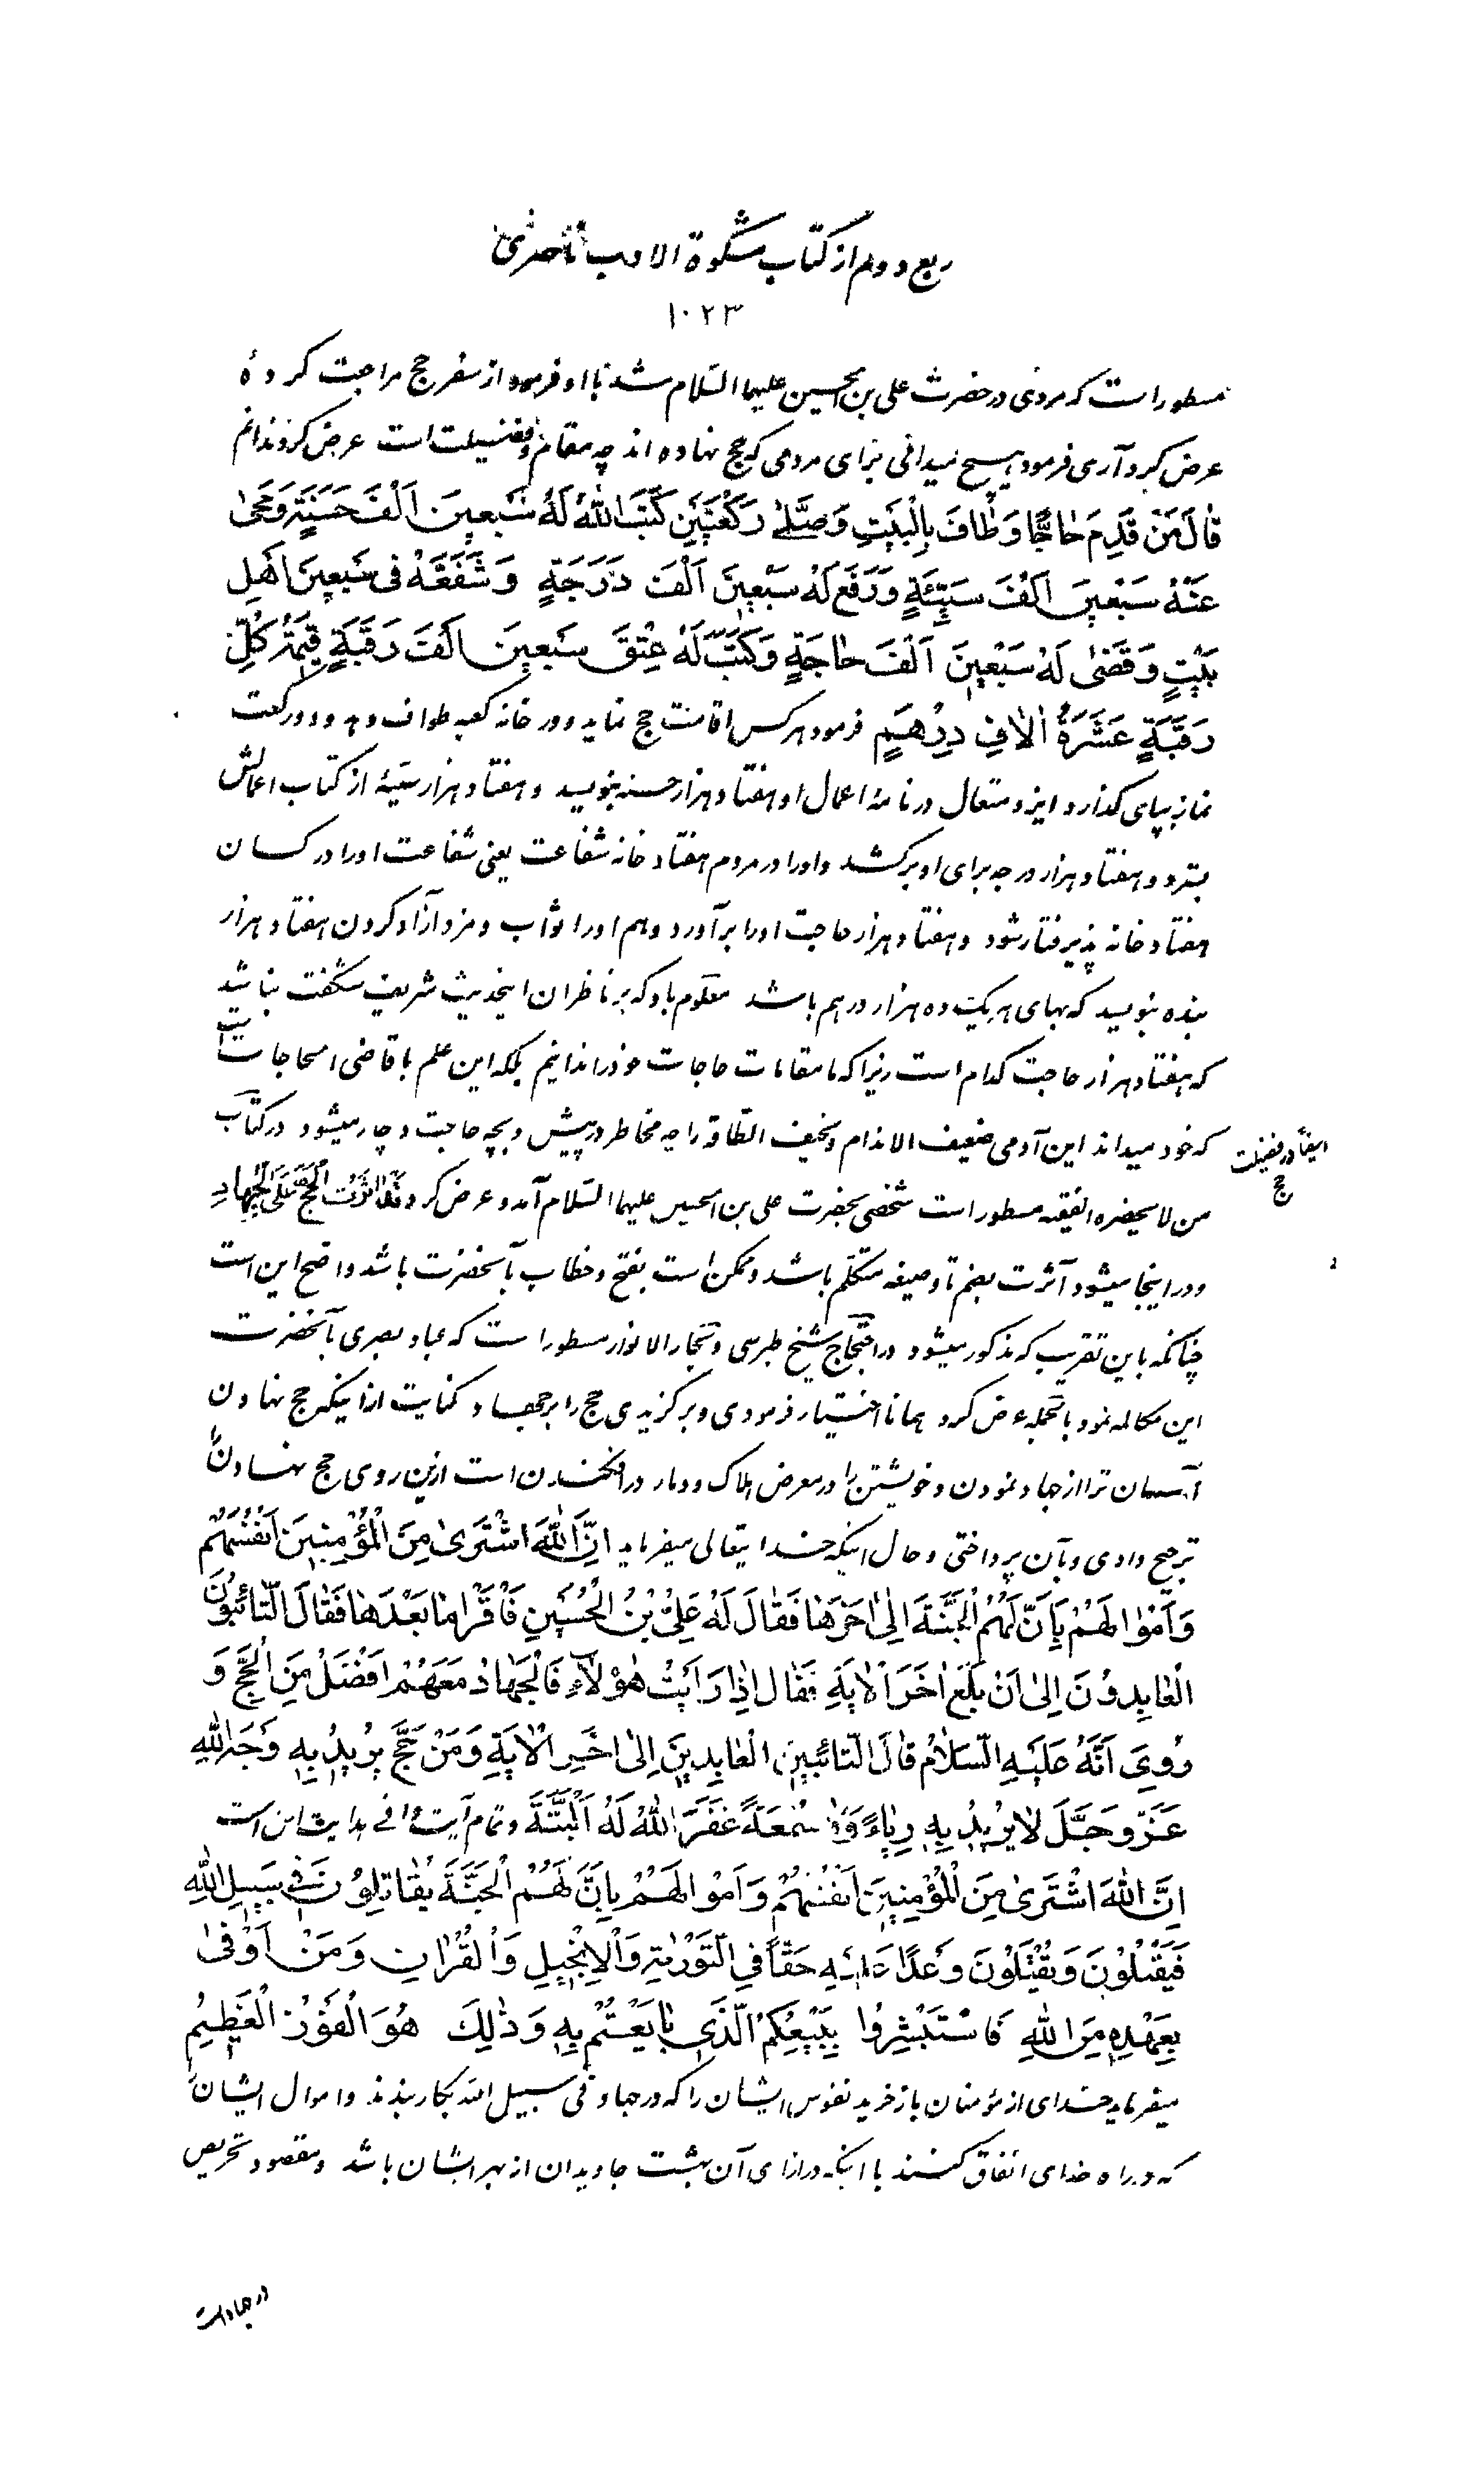 ربع دوم از کتاب مشکوة الادب ناصری
۱۰۲۳
مسطور است که مردی در حضرت علی بن الحسین علیهما السّلام شد با او فرمود از سفر حج مراجعت کردهٔ
عرض کرد آری فرمود هیچ میدانی برای مردمی که حج نهاده‌اند چه مقام و فضیلت است عرض کرد ندانم
قٰالَ مَنْ قَدِمَ حٰاجًّا وَطٰافَ بِالْبَیْتِ وَصَلّٰی رَکْعَتَیْنِ کَتَبَ اللّٰهُ لَهُ سَبْعینَ اَلْفَ حَسَنَةٍ وَمَحیٰ
عَنْهُ سَبْعینَ اَلْفَ سَیِّئَةٍ وَرَفَعَ لَهُ سَبْعینَ اَلْفَ دَرَجَةٍ وَشَفَّعَهُ فی سَبْعینَ اَهْلِ
بَیْتٍ وَقَضٰی لَهُ سَبْعینَ اَلْفَ حٰاجَةٍ وَکَتَبَ لَهُ عِتْقَ سَبْعینَ اَلْفَ رَقَبَةٍ قیمَةُ کُلِّ
رَقَبَةٍ عَشَرَةُ اٰلافِ دِرْهَمٍ فرمود هرکس اقامت حج نماید و در خانه کعبه طواف دهد و دو رکعت
نماز بپای گذارد ایزد متعال در نامهٔ اعمال او هفتاد هزار حسنه بنویسد و هفتاد هزار سیّئه از کتاب اعمالش
بسترد و هفتاد هزار درجه برای او برکشد و او را در مردم هفتاد خانه شفاعت یعنی شفاعت او را در کسان
هفتاد خانه پذیرفتار شود و هفتاد هزار حاجت او را برآورد و هم او را ثواب و مزد آزاد کردن هفتاد هزار
بنده بنویسد که بهای هریک ده هزار درهم باشد معلوم باد که بر ناظران اینحدیث شریف شگفت نباشد
که هفتاد هزار حاجت کدام است زیرا که ما مقامات حاجات خود را ندانیم بلکه این علم با قاضی الحاجات است
که خود میداند این آدمی ضعیف الاندام و نحیف الطّاقه را چه مخاطر در پیش و بچه حاجت دچار میشود در کتاب
ایضاً در فضیلت
حج
من لایحضره الفقیه مسطور است شخصی بحضرت علی بن الحسین علیهما السّلام آمد و عرض کرد قَدْ اٰثَرْتَ الْحَجَّ عَلَی الْجِهٰادِ
و در اینجا میشود آثرت بضم تا و صیغه متکلّم باشد و ممکن است بفتح و خطاب بآنحضرت باشد و اصح این است
چنانکه باین تقریب که مذکور میشود در احتجاج شیخ طبرسی و بحار الانوار مسطور است که عباد بصری بآنحضرت
این مکالمه نمود بالجمله عرض کرد همانا اختیار فرمودی و برگزیدی حج را بر جهاد کنایت از اینکه حج نهادن
آسان‌تر از جهاد نمودن و خویشتن را در معرض هلاک و دمار در افکندن است ازین روی حج نهادن را
ترجیح دادی و بآن پرداختی و حال اینکه خدایتعالی میفرماید اِنَّ اللّٰهَ اشْتَریٰ مِنَ الْمُؤْمِنینَ اَنْفُسَهُمْ
وَاَمْوٰالَهُمْ بِاَنَّ لَهُمُ الْجَنَّةَ اِلیٰ اٰخِرِهٰا فَقٰالَ لَهُ عَلِیُّ بْنُ الْحُسَیْنِ فَاقْرَأ مٰا بَعْدَهٰا فَقٰالَ التّٰائِبُونَ
الْعٰابِدُونَ اِلیٰ اَنْ بَلَغَ اٰخَرَ اْلاٰیَةِ فَقٰالَ اِذٰا رَاَیْتَ هٰؤُلآءِ فَالْجِهٰادُ مَعَهُمْ اَفْضَلُ مِنَ الْحَجِّ وَ
رُوِیَ اَنَّهُ عَلَیْهِ السَّلاٰمُ قٰالَ التّٰائِبینَ الْعٰابِدینَ اِلیٰ اٰخِرِ اْلاٰیَةِ وَمَنْ حَجَّ یُریدُ بِهِ وَجْهَ اللّٰهِ
عَزَّ وَجَلَّ لاٰیُریدُ بِهِ رِیٰاءً وَلاٰ سُمْعَةً غَفَرَ اللّٰهُ لَهُ اَلْبَتَّةَ و تمام آیهٔ وافی هدایت این است
اِنَّ اللّٰهَ اشْتَریٰ مِنَ الْمُؤْمِنینَ اَنْفُسَهُمْ وَاَمْوٰالَهُمْ بِاَنَّ لَهُمُ الْجَنَّةَ یُقٰاتِلُونَ فی سَبیلِ اللّٰهِ
فَیَقْتُلُونَ وَیُقْتَلُونَ وَعْدًا عَلَیْهِ حَقًّا فِی التَّوْرٰیةِ وَالْاِنْجیلِ وَالْقُرْاٰنِ وَمَنْ اَوْفیٰ
بِعَهْدِهِ مِنَ اللّٰهِ فَاسْتَبْشِرُوا بِبَیْعِکُمُ الَّذی بٰایَعْتُمْ بِهِ وَذٰلِکَ هُوَ الْفَوْزُ الْعَظیمُ
میفرماید خدای از مؤمنان باز خرید نفوس ایشان را که در جهاد فی سبیل الله بکار بندند و اموال ایشان را
که در راه خدای انفاق کنند با اینکه در ازای آن بهشت جاویدان از بهر ایشان باشد و مقصود تحریص
در جهاد است